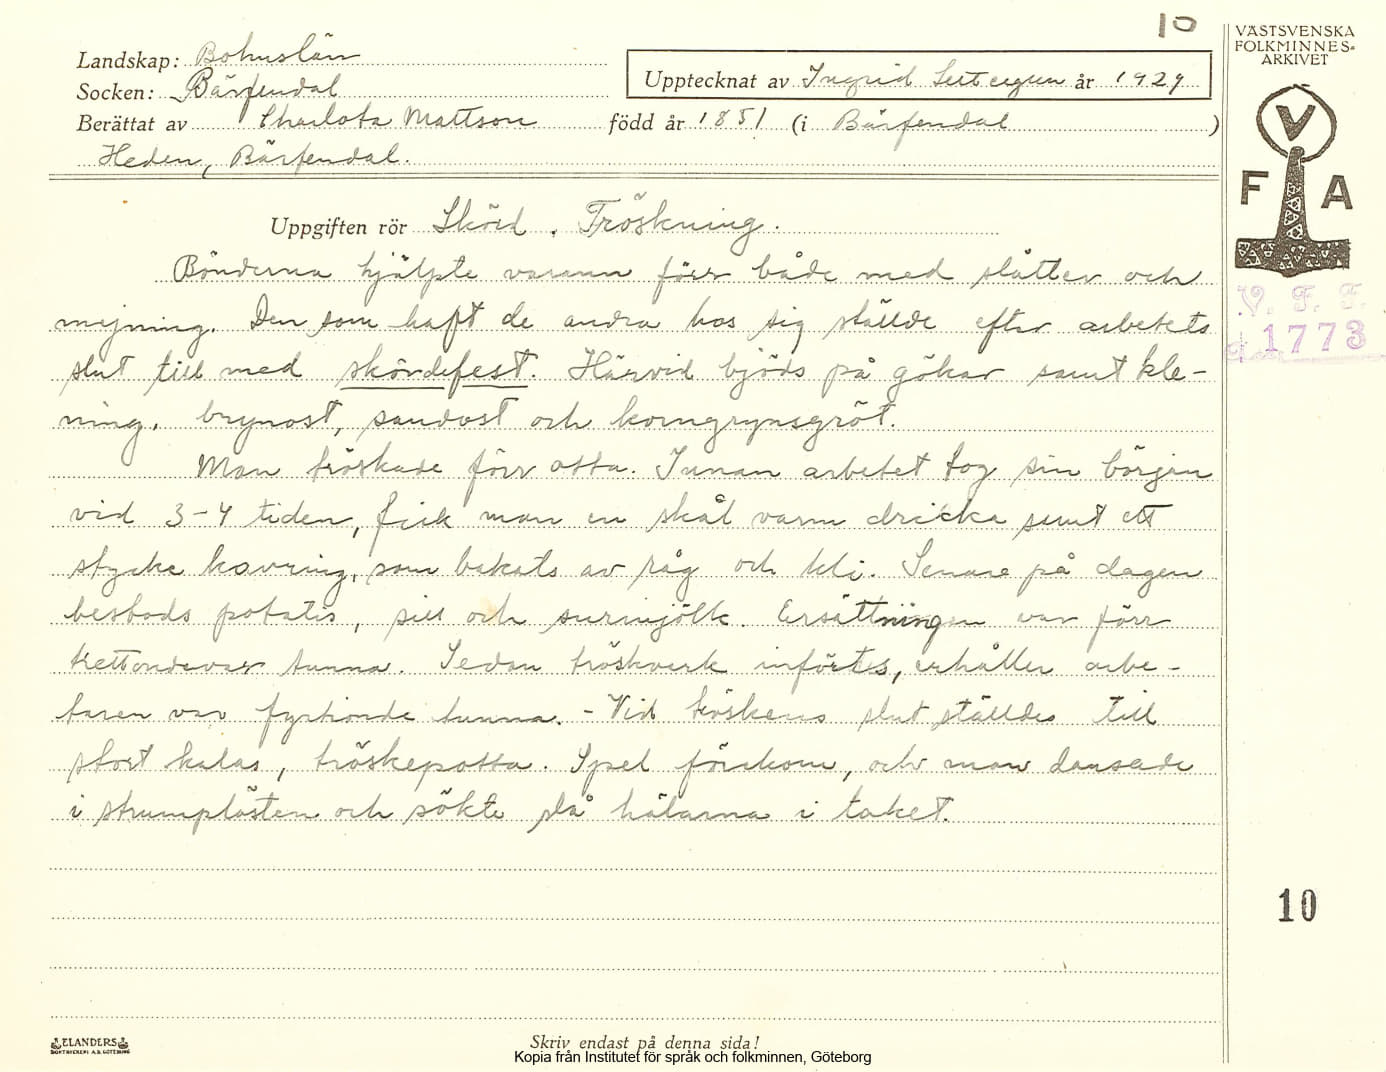 10
VÄSTSVENSKA
FOLKMINNES-
ARKIVET
Landskap: Bohuslän
Socken: Bärfendal
Upptecknat av Ingrid år 1929
Berättat av Charlota Mattson född år 1851 (i Bärfendal )
Heden, Bärfendal.
V
F A
Uppgiften rör Skörd, Tröskning.
Bönderna hjälpte varann förr både med slåtter och
mejning. Den som haft de andra hos sig ställde efter arbetets
slut till med skördefest. Härvid bjöds på gökar samt kle-
ning, brynost, sandost och korngrynsgröt.
Man tröskade förr otta. Innan arbetet tog sin början
vid 3-4 tiden, fick man en skål varm dricka samt ett
stycke kavring, som bakats av råg och kli. Senare på dagen
bestods potatis, sill och surmjölk. Ersättningen var förr
trettondevar tunna. Sedan tröskverk infördes, erhåller arbe-
taren var fjortonde tunna. - Vid tröskens slut ställdes till
stort kalas, tröskepotta. Spel förekom, och man dansade
i strumplästen och sökte slå hälarna i taket.
V. F. F.
1773
10
ELANDERS
BOKTRYCKERI A.B. GÖTEBORG
Skriv endast på denna sida!
Kopia från Institutet för språk och folkminnen, Göteborg